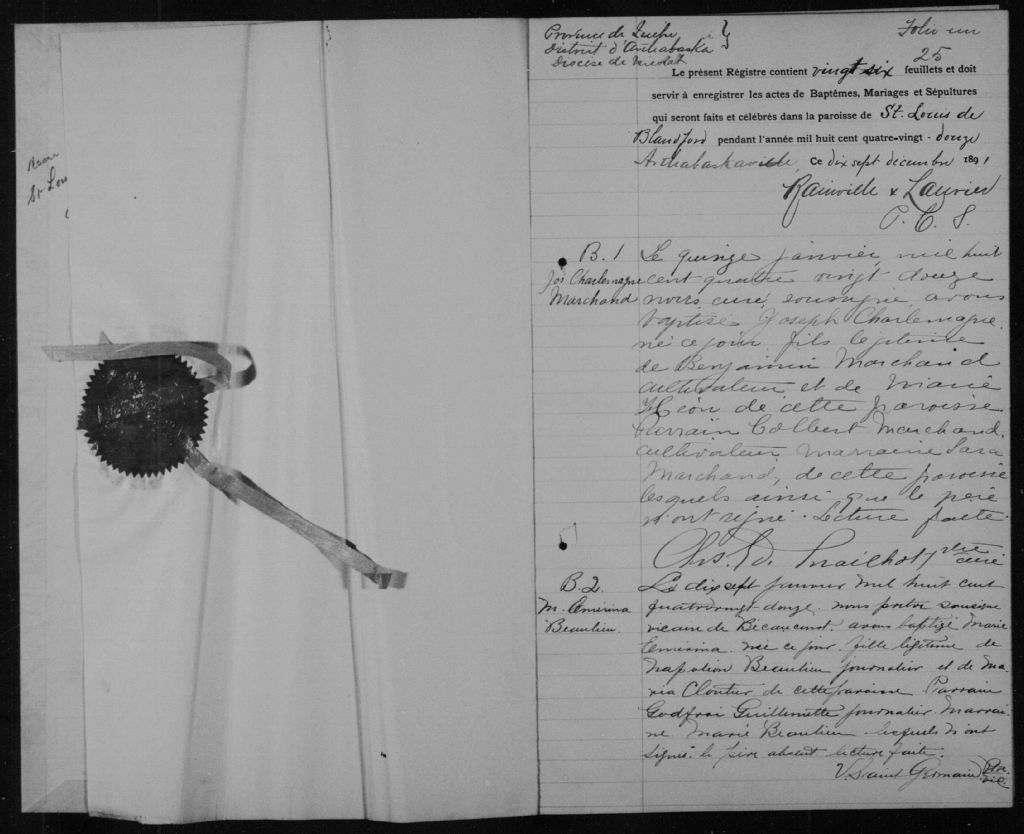 St Lou
Province de Québec
District d'Arthabaska
Diocèse de Nicolet
Folio un
25
Le présent Régistre contient vingt six feuillets et doit
servir à enregistrer les actes de Baptêmes, Mariages et Sépultures
qui seront faits et célébrés dans la paroisse de St. Louis de
Blandford pendant l'année mil huit cent quatre-vingt-douze
Arthabaskaville, Ce dix sept décembre 1891
Rainville & Laurier
P. C. S.
B. 1
Jos. Charlemagne
Marchand
Le quinze janvier, mil huit
cent quatre vingt douze
nous curé, soussigné, avons
baptisé Joseph Charlemagne,
né ce jour, fils légitime
de Benjamin Marchand
cultivateur et de Marie
Héon de cette paroisse
Parrain Colbert Marchand,
cultivateur, marraine Sara
Marchand, de cette paroisse
lesquels ainsi que le père
n'ont signé. Lecture faite.
Chs. Ed. Mailhot ptre curé
B. 2.
M. Emérina
Beaulieu.
Le dix sept janvier mil huit cent
quatrevingt douze, nous prêtre soussigné
vicaire de Bécancour, avons baptizé Marie
Emérina née ce jour, fille légitime de
Napoléon Beaulieu journalier et de Ma-
ria Cloutier de cette paroisse. Parrain
Godfroi Guillemette journalier. Marrai-
ne Marie Beaulieu lesquels n'ont
signés. le père absent lecture faite.
V. Saint Germain Ptre
vic.